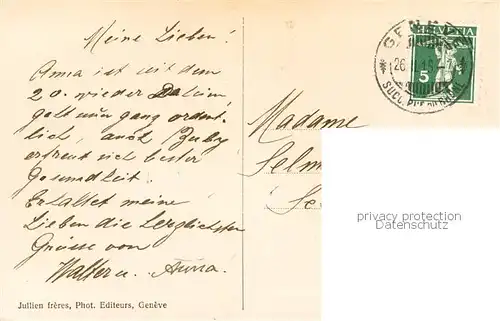 Meine Lieben!
Anna ist seit dem
20. wieder Daheim,
geht nun ganz ordent-
lich, auch Ruby
erfreut sich bester
Gesundheit.
Erhaltet meine
Lieben die herzlichsten
Grüsse von
Walter u. Anna.
Jullien frères, Phot. Editeurs, Genève
Madame
Selm
HELVETIA
5
GENÈVE
26
privacy protection
Datenschutz